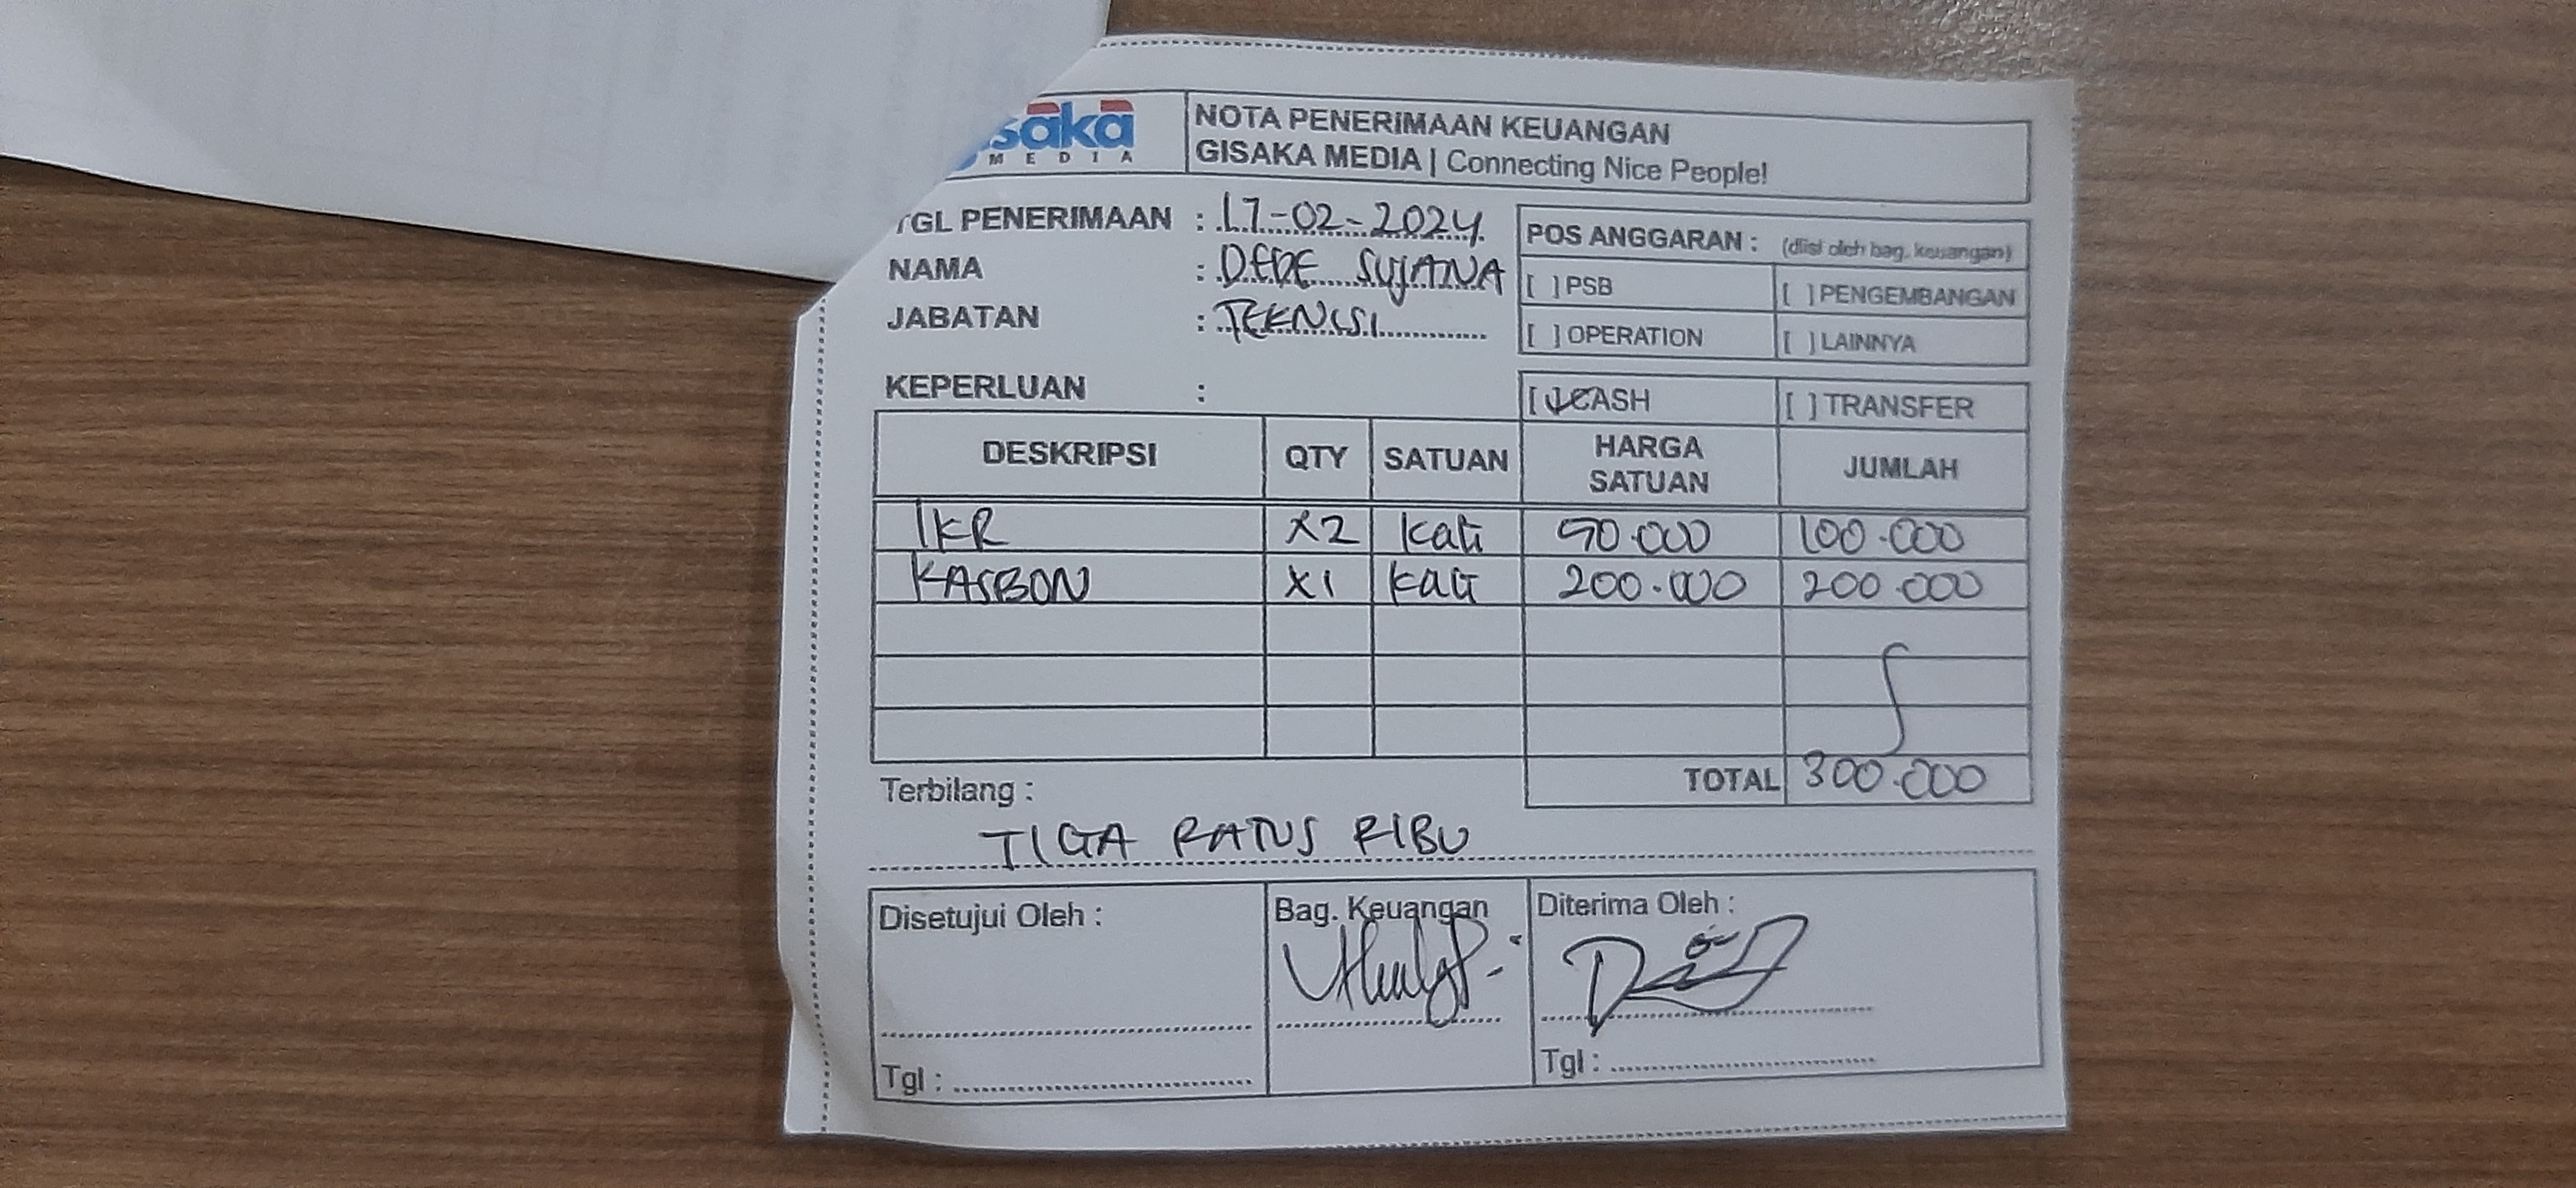 saka
MEDIA
NOTA PENERIMAAN KEUANGAN
GISAKA MEDIA | Connecting Nice People!
TGL PENERIMAAN : 17-02-2024
NAMA : DEDE SUJANA
JABATAN : TEKNISI
POS ANGGARAN : (diisi oleh bag. keuangan)
[ ] PSB [ ] PENGEMBANGAN
[ ] OPERATION [ ] LAINNYA
KEPERLUAN :
[✓] CASH [ ] TRANSFER
DESKRIPSI QTY SATUAN HARGA SATUAN JUMLAH
IKR X2 Kali 50.000 100.000
KASBON X1 Kali 200.000 200.000
TOTAL 300.000
Terbilang :
TIGA RATUS RIBU
Disetujui Oleh : Bag. Keuangan Diterima Oleh :
Tgl : Tgl :